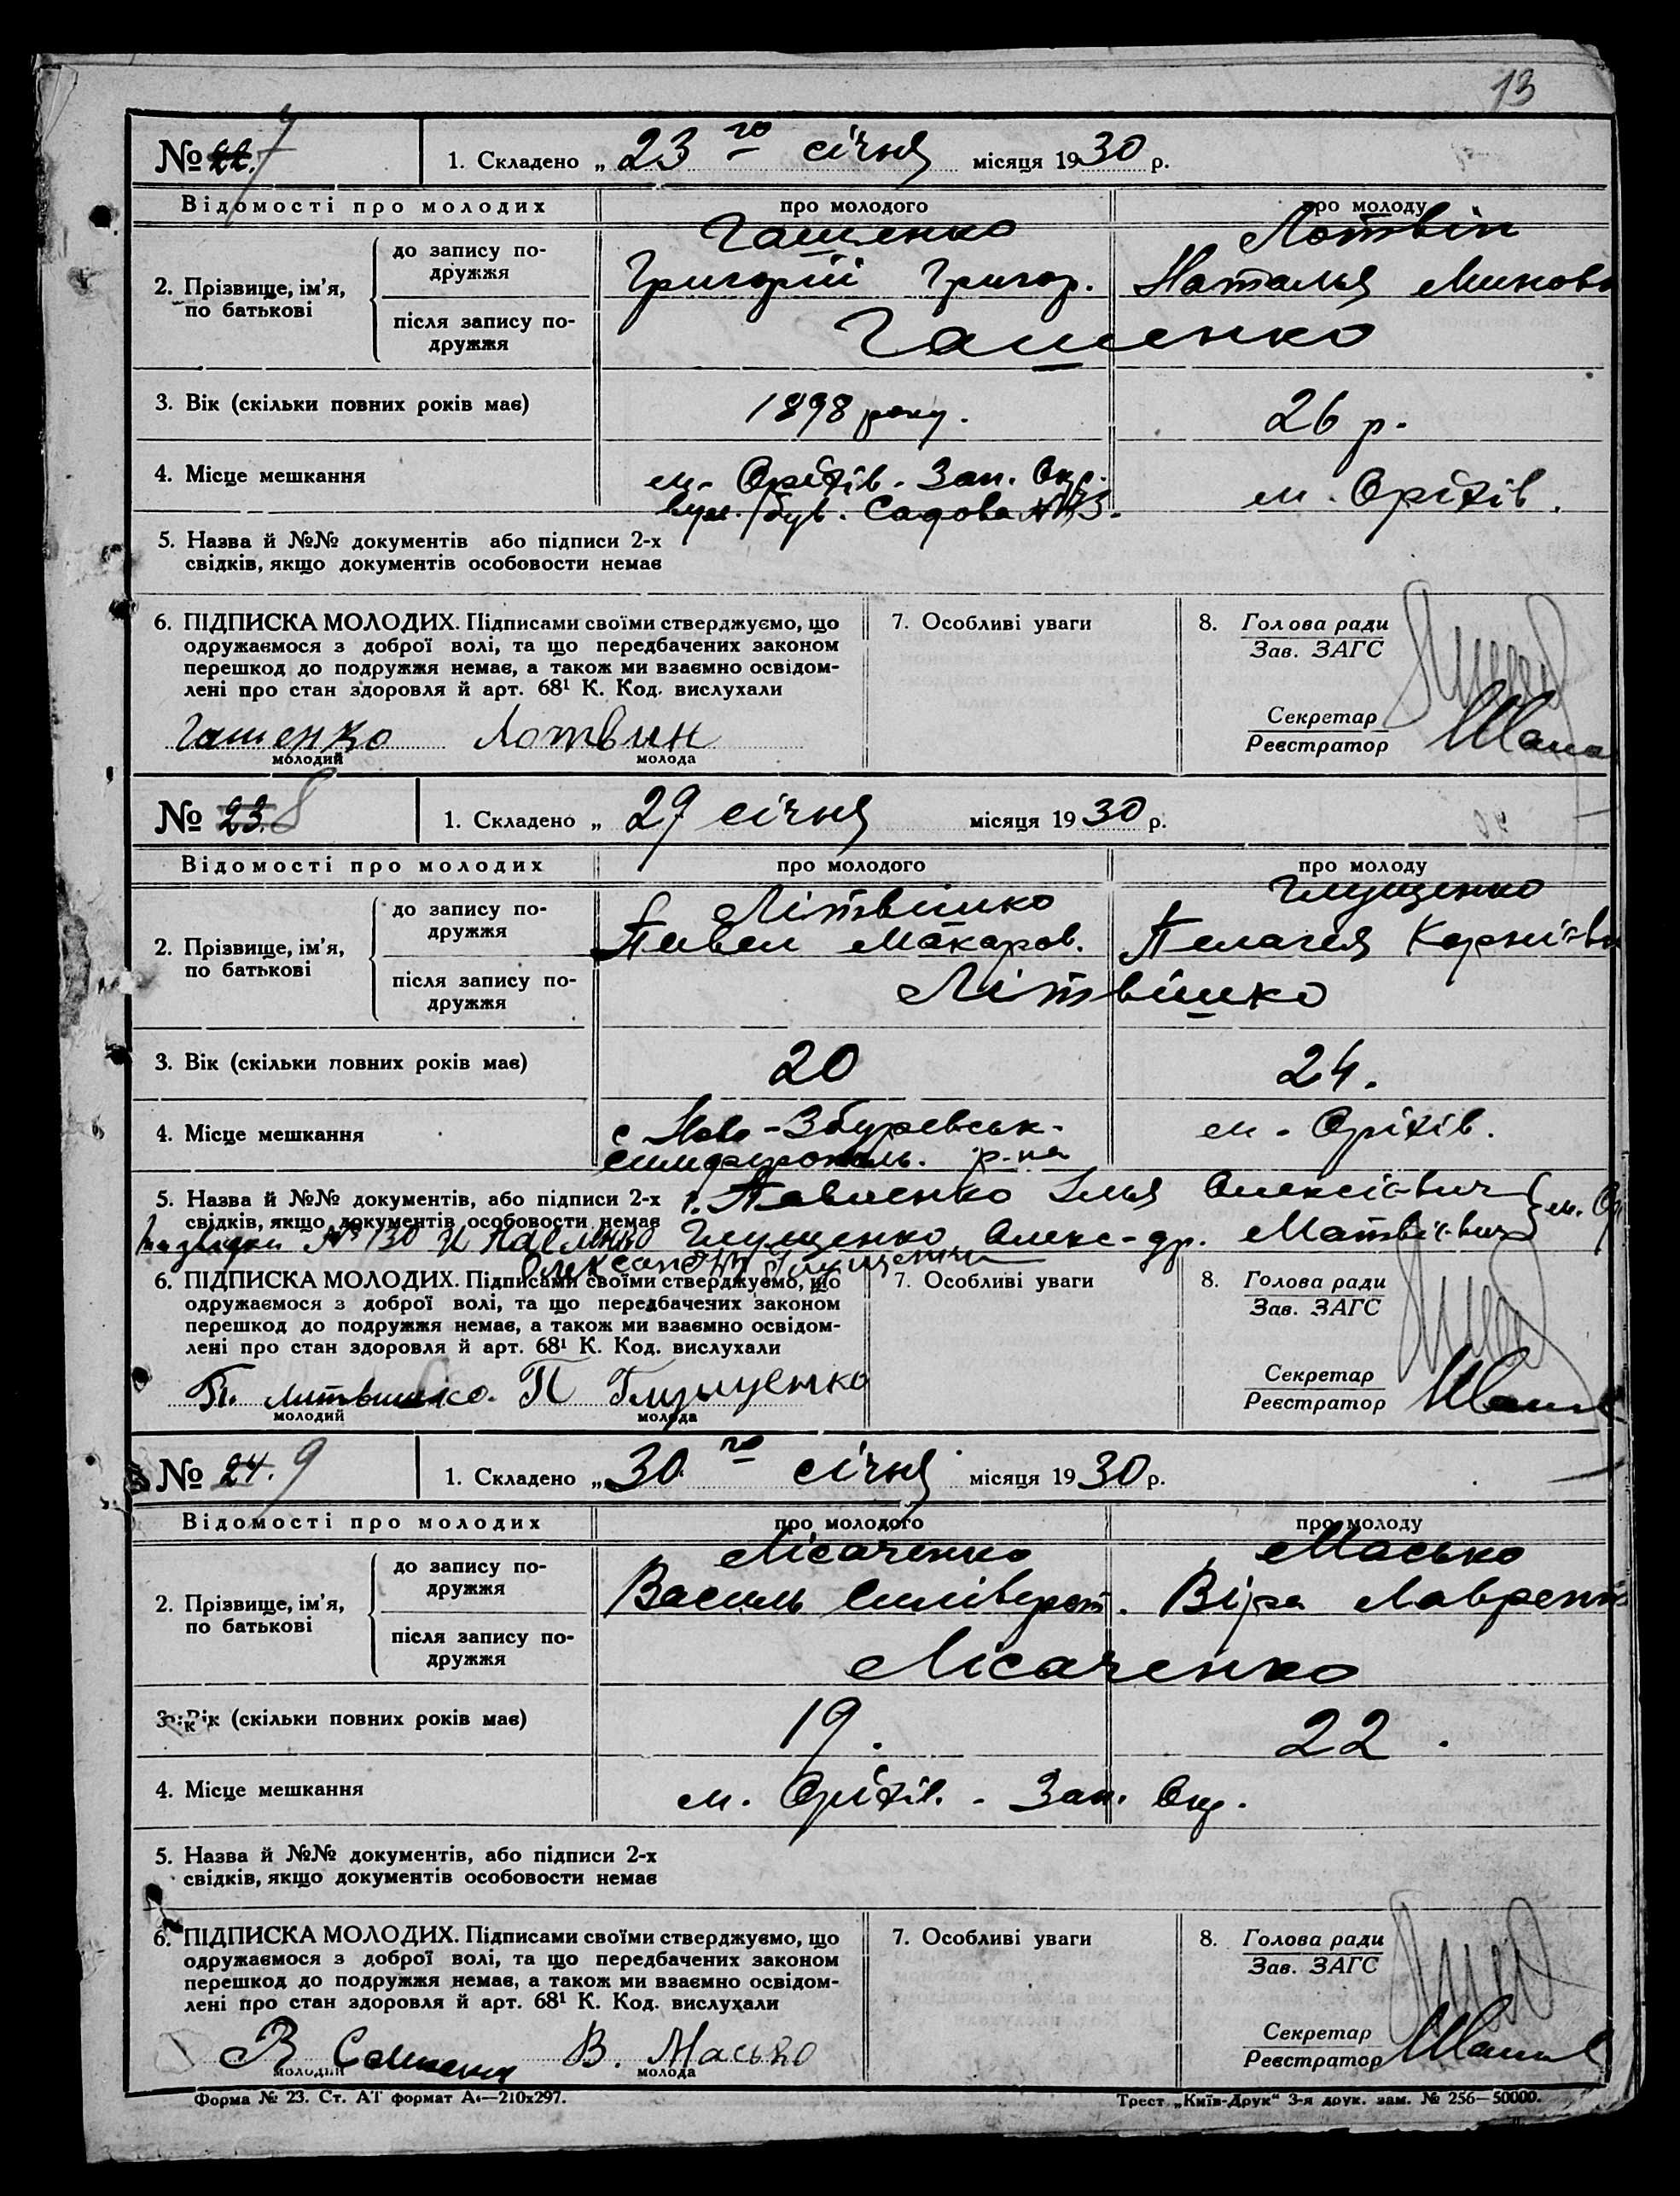 13
№ 22. 7
1. Складено „ 23 го січня місяця 1930 р.
Відомості про молодих про молодого про молоду
2. Прізвище, ім’я, по батькові
до запису подружжя
Гашенко Лотвін
Григорій Григор. Наталья Минов
після запису подружжя
Гашенко
3. Вік (скільки повних років має) 1898 року. 26 р.
4. Місце мешкання м. Оріхів. Зап. Окр. м. Оріхів.
вул. Садова №
5. Назва й №№ документів або підписи 2-х
свідків, якщо документів особовости немає
6. ПІДПИСКА МОЛОДИХ. Підписами своїми стверджуємо, що
одружаємося з доброї волі, та що передбачених законом
перешкод до подружжя немає, а також ми взаємно освідом-
лені про стан здоровля й арт. 68¹ К. Код. вислухали
Гашенко Лотвин
молодий молода
7. Особливі уваги
8. Голова ради
Зав. ЗАГС
Секретар
Реєстратор
№ 23. 8
1. Складено „ 29 січня місяця 1930 р.
Відомості про молодих про молодого про молоду
2. Прізвище, ім’я, по батькові
до запису подружжя
Літвішко Глущенко
Павел Макаров. Пелагея Корніївн
після запису подружжя
Літвішко
3. Вік (скільки повних років має) 20 24.
4. Місце мешкання с Ново-Збурєвськ- м. Оріхів.
р-на
5. Назва й №№ документів, або підписи 2-х 1. Павленко Ілья Олексієвич м. Ор
свідків, якщо документів особовости немає Глущенко Алекс-др. Матвієвич
№ 130 И Павленко
Олександр Глущенко
6. ПІДПИСКА МОЛОДИХ. Підписами своїми стверджуємо, що
одружаємося з доброї волі, та що передбачених законом
перешкод до подружжя немає, а також ми взаємно освідом-
лені про стан здоровля й арт. 68¹ К. Код. вислухали
П. Литвишко. П Глущенко
молодий молода
7. Особливі уваги
8. Голова ради
Зав. ЗАГС
Секретар
Реєстратор
№ 24. 9
1. Складено „ 30 го січня місяця 1930 р.
Відомості про молодих про молодого про молоду
2. Прізвище, ім’я, по батькові
до запису подружжя
Лісаченко Масько
Василь Силіверст. Віра Лаврент
після запису подружжя
Лісаченко
3. Вік (скільки повних років має) 19. 22.
4. Місце мешкання м. Оріхів. - Зап. Окр.
5. Назва й №№ документів, або підписи 2-х
свідків, якщо документів особовости немає
6. ПІДПИСКА МОЛОДИХ. Підписами своїми стверджуємо, що
одружаємося з доброї волі, та що передбачених законом
перешкод до подружжя немає, а також ми взаємно освідом-
лені про стан здоровля й арт. 68¹ К. Код. вислухали
В. Масько
молодий молода
7. Особливі уваги
8. Голова ради
Зав. ЗАГС
Секретар
Реєстратор
Форма № 23. Ст. АТ формат А₄—210х297.
Трест „Київ-Друк“ 3-я друк. зам. № 256—50000.